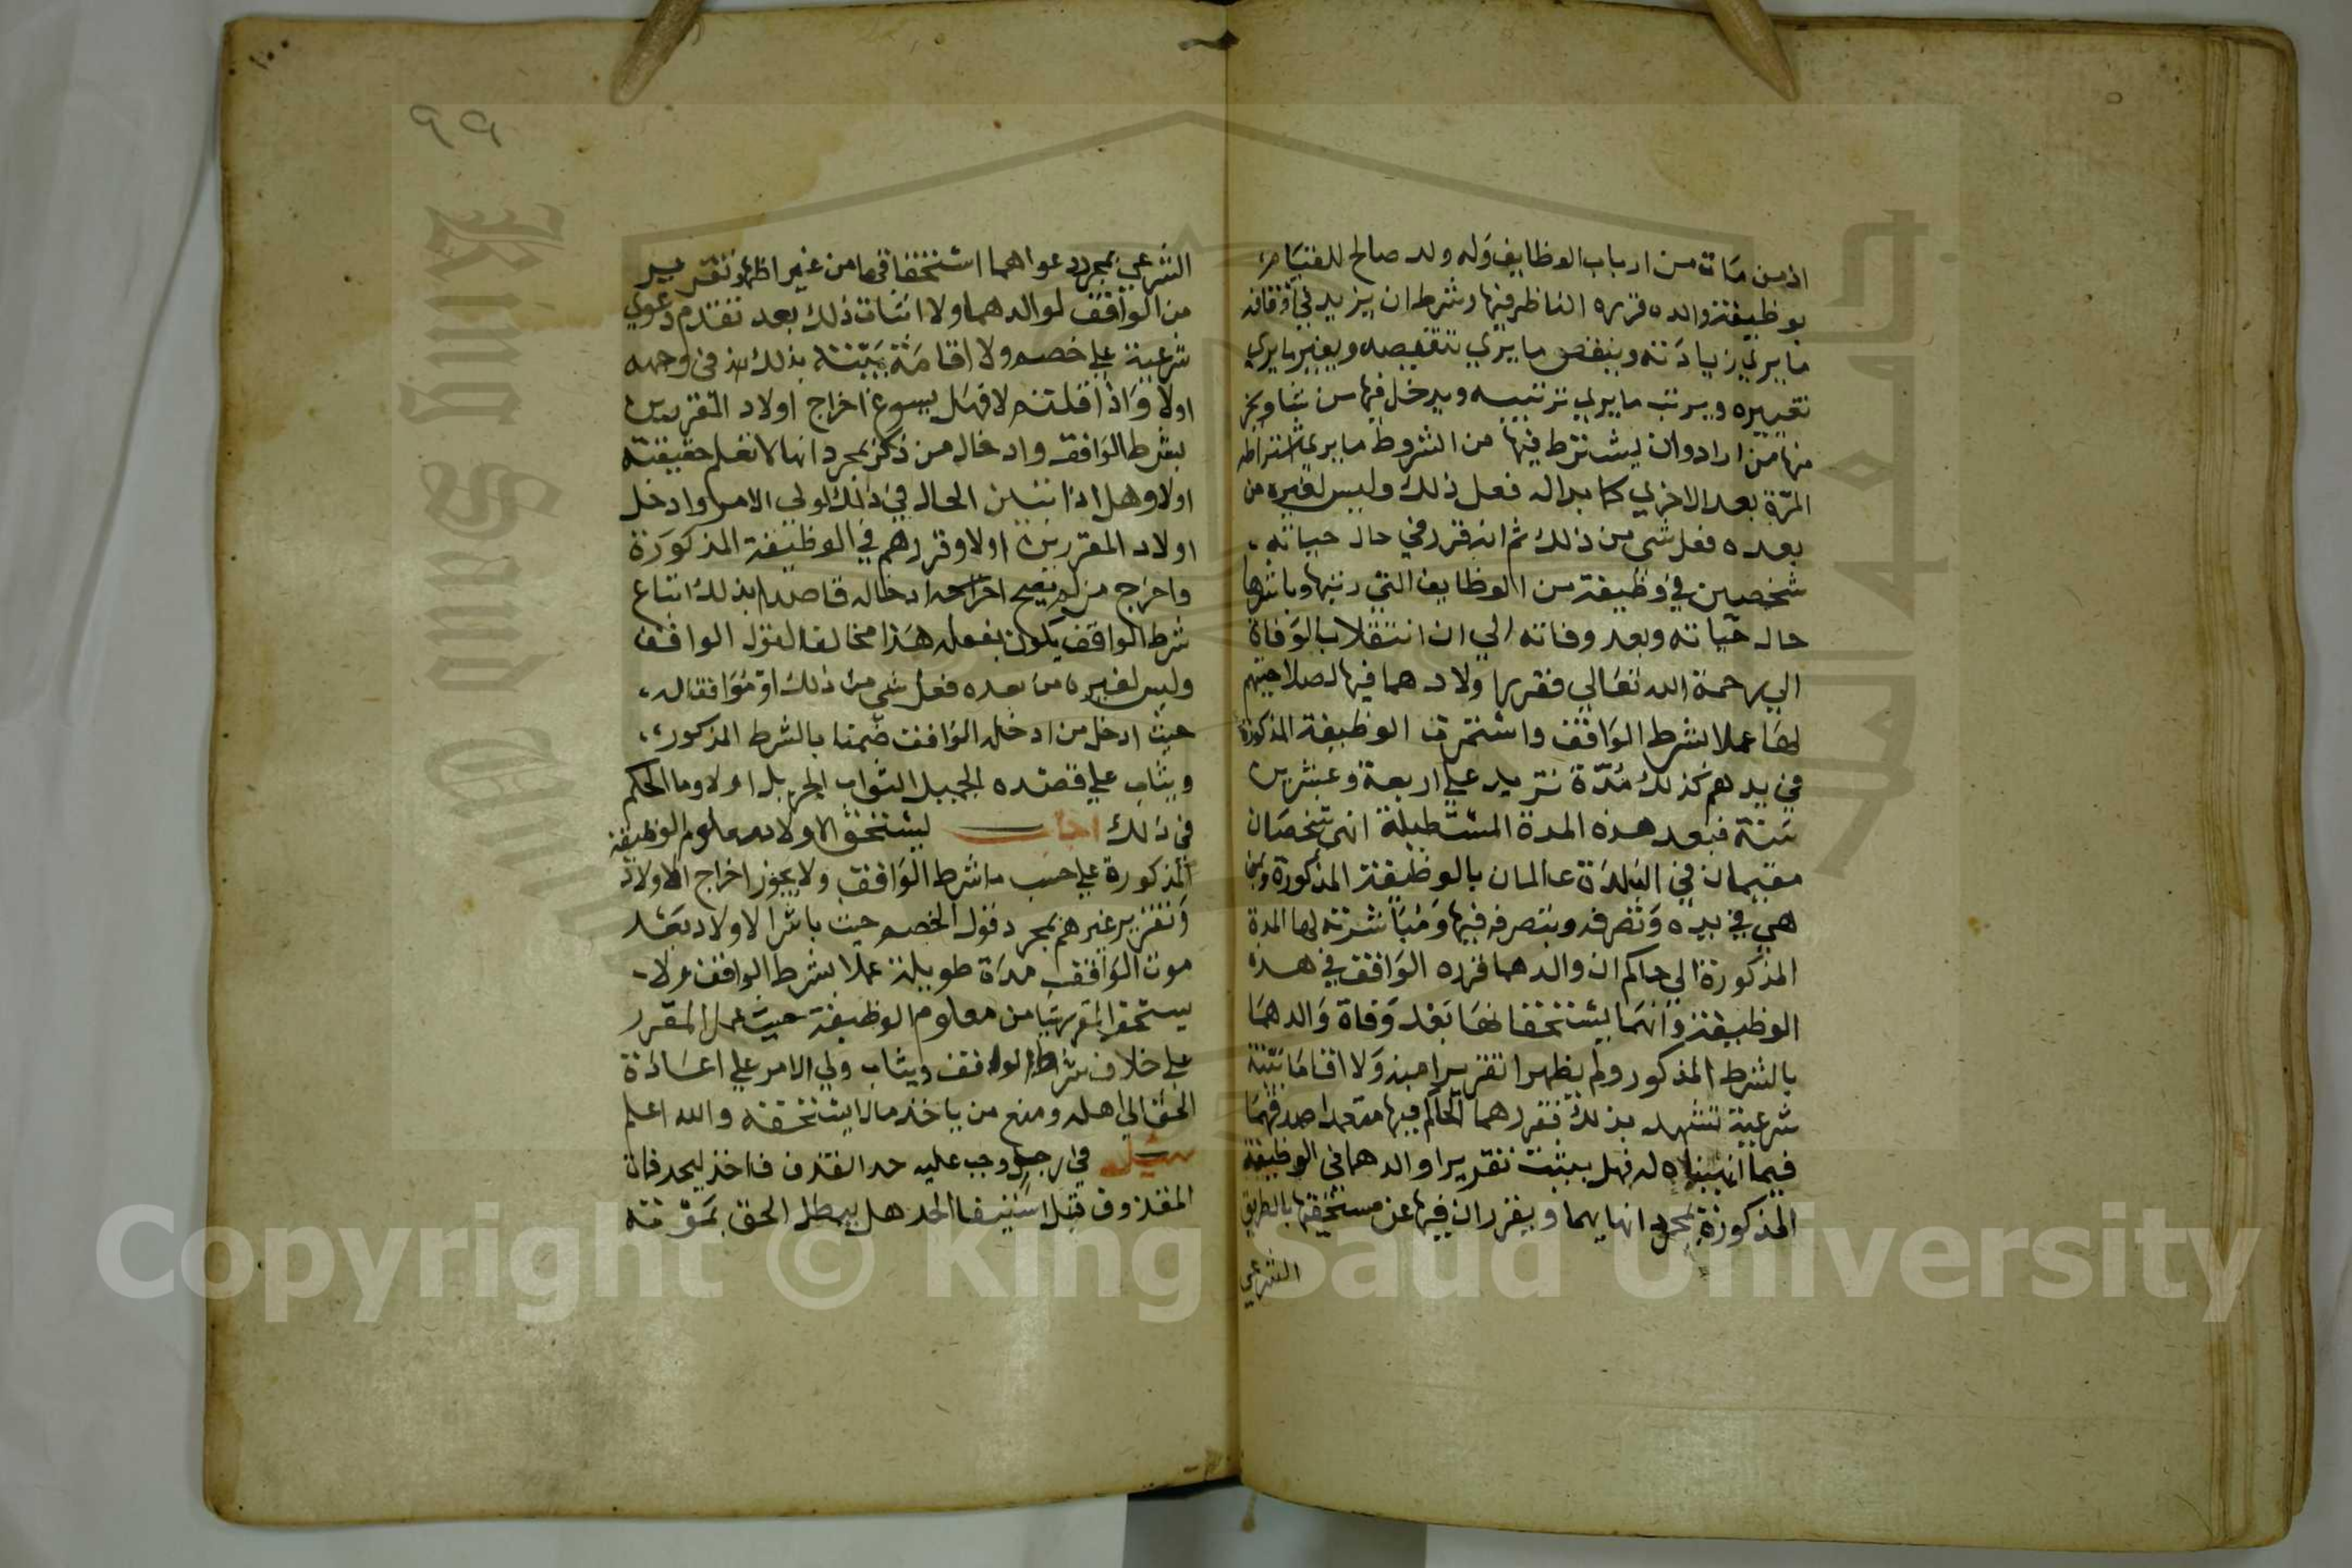 ان من مات من ارباب الوظايف وله ولد صالح للقيام
بوظيفة والده قرره الناظر فيها وشرط ان يزيد في اوقافه
ما يري زيادته وينقص ما يري تنقيصه ويغير ما يري
تغييره ويرتب ما يري ترتيبه ويدخل فيها من شا ويخرج
منها من اراد وان يشترط فيها من الشروط ما يري اشتراطه
المرة بعد الاخري كما بدا له فعل ذلك وليس لغيره من
بعده فعل شي من ذلك ثم انه قرر في حال حياته
شخصين في وظيفة من الوظايف التي رتبها وباشرها
حال حياته وبعد وفاته الي ان انتقلا بالوفاة
الي رحمة الله تعالي فقرر اولادهما فيها لصلاحيتهم
لها عملا بشرط الواقف واستمرت الوظيفة المذكورة
في يدهم كذلك مدة تزيد علي اربعة وعشرين
سنة فبعد هذه المدة المستطيلة انهي شخصان
مقيمان في البلدة عالمان بالوظيفة المذكورة وبمن
هي في يده وتصرفه وبتصرفه فيها ومباشرته لها المدة
المذكورة الي حاكم ان والدهما قرره الواقف في هذه
الوظيفة وانهما يستحقانها بعد وفاة والدهما
بالشرط المذكور ولم يظهرا تقريرا منه ولا اقاما بينة
شرعية تشهد بذلك فقررهما الحاكم فيها معتمدا صدقهما
فيما انهياه له فهل يثبت تقرير والدهما في الوظيفة
المذكورة بمجرد انهايهما ويقرران فيها عن مستحقها بالطريق
الشرعي
الشرعي بمجرد دعواهما استحقاقها من غير اظهار تقرير
من الواقف لوالدهما ولا اثبات ذلك بعد تقدم دعوي
شرعية علي خصم ولا اقامة بينة بذلك في وجهه
اولا واذا قلتم لا فهل يسوغ اخراج اولاد المقررين
بشرط الواقف وادخال من ذكر بمجرد انها لا تعلم حقيقته
اولا وهل اذا تبين الحال في ذلك لولي الامر وادخل
اولاد المقررين اولا وقررهم في الوظيفة المذكورة
واخرج من لم يصح ادخاله قاصدا بذلك اتباع
شرط الواقف يكون بفعله هذا مخالفا لقول الواقف
وليس لغيره من بعده فعل شي من ذلك او موافقا له
حيث ادخل من ادخله الواقف ضمنا بالشرط المذكور
ويثاب علي قصده الجميل الثواب الجزيل اولا وما الحكم
في ذلك اجاب يستحق الاولاد معلوم الوظيفة
المذكورة علي حسب ما شرط الواقف ولا يجوز اخراج الاولاد
وتقرير غيرهم بمجرد قول الخصم حيث باشر الاولاد بعد
موت الواقف مدة طويلة عملا بشرط الواقف ولا
يستحق المقرر شيا من معلوم الوظيفة حيث عمل المقرر
علي خلاف شرط الواقف ويثاب ولي الامر علي اعادة
الحق الي اهله ومنع من ياخذ ما لا يستحقه والله اعلم
سئل في رجل وجب عليه حد القذف فاخذ ليحد فمات
المقذوف قبل استيفا الحد هل يبطل الحق بموته
٩٩
١٠٠
King Saud University
Copyright © King Saud University